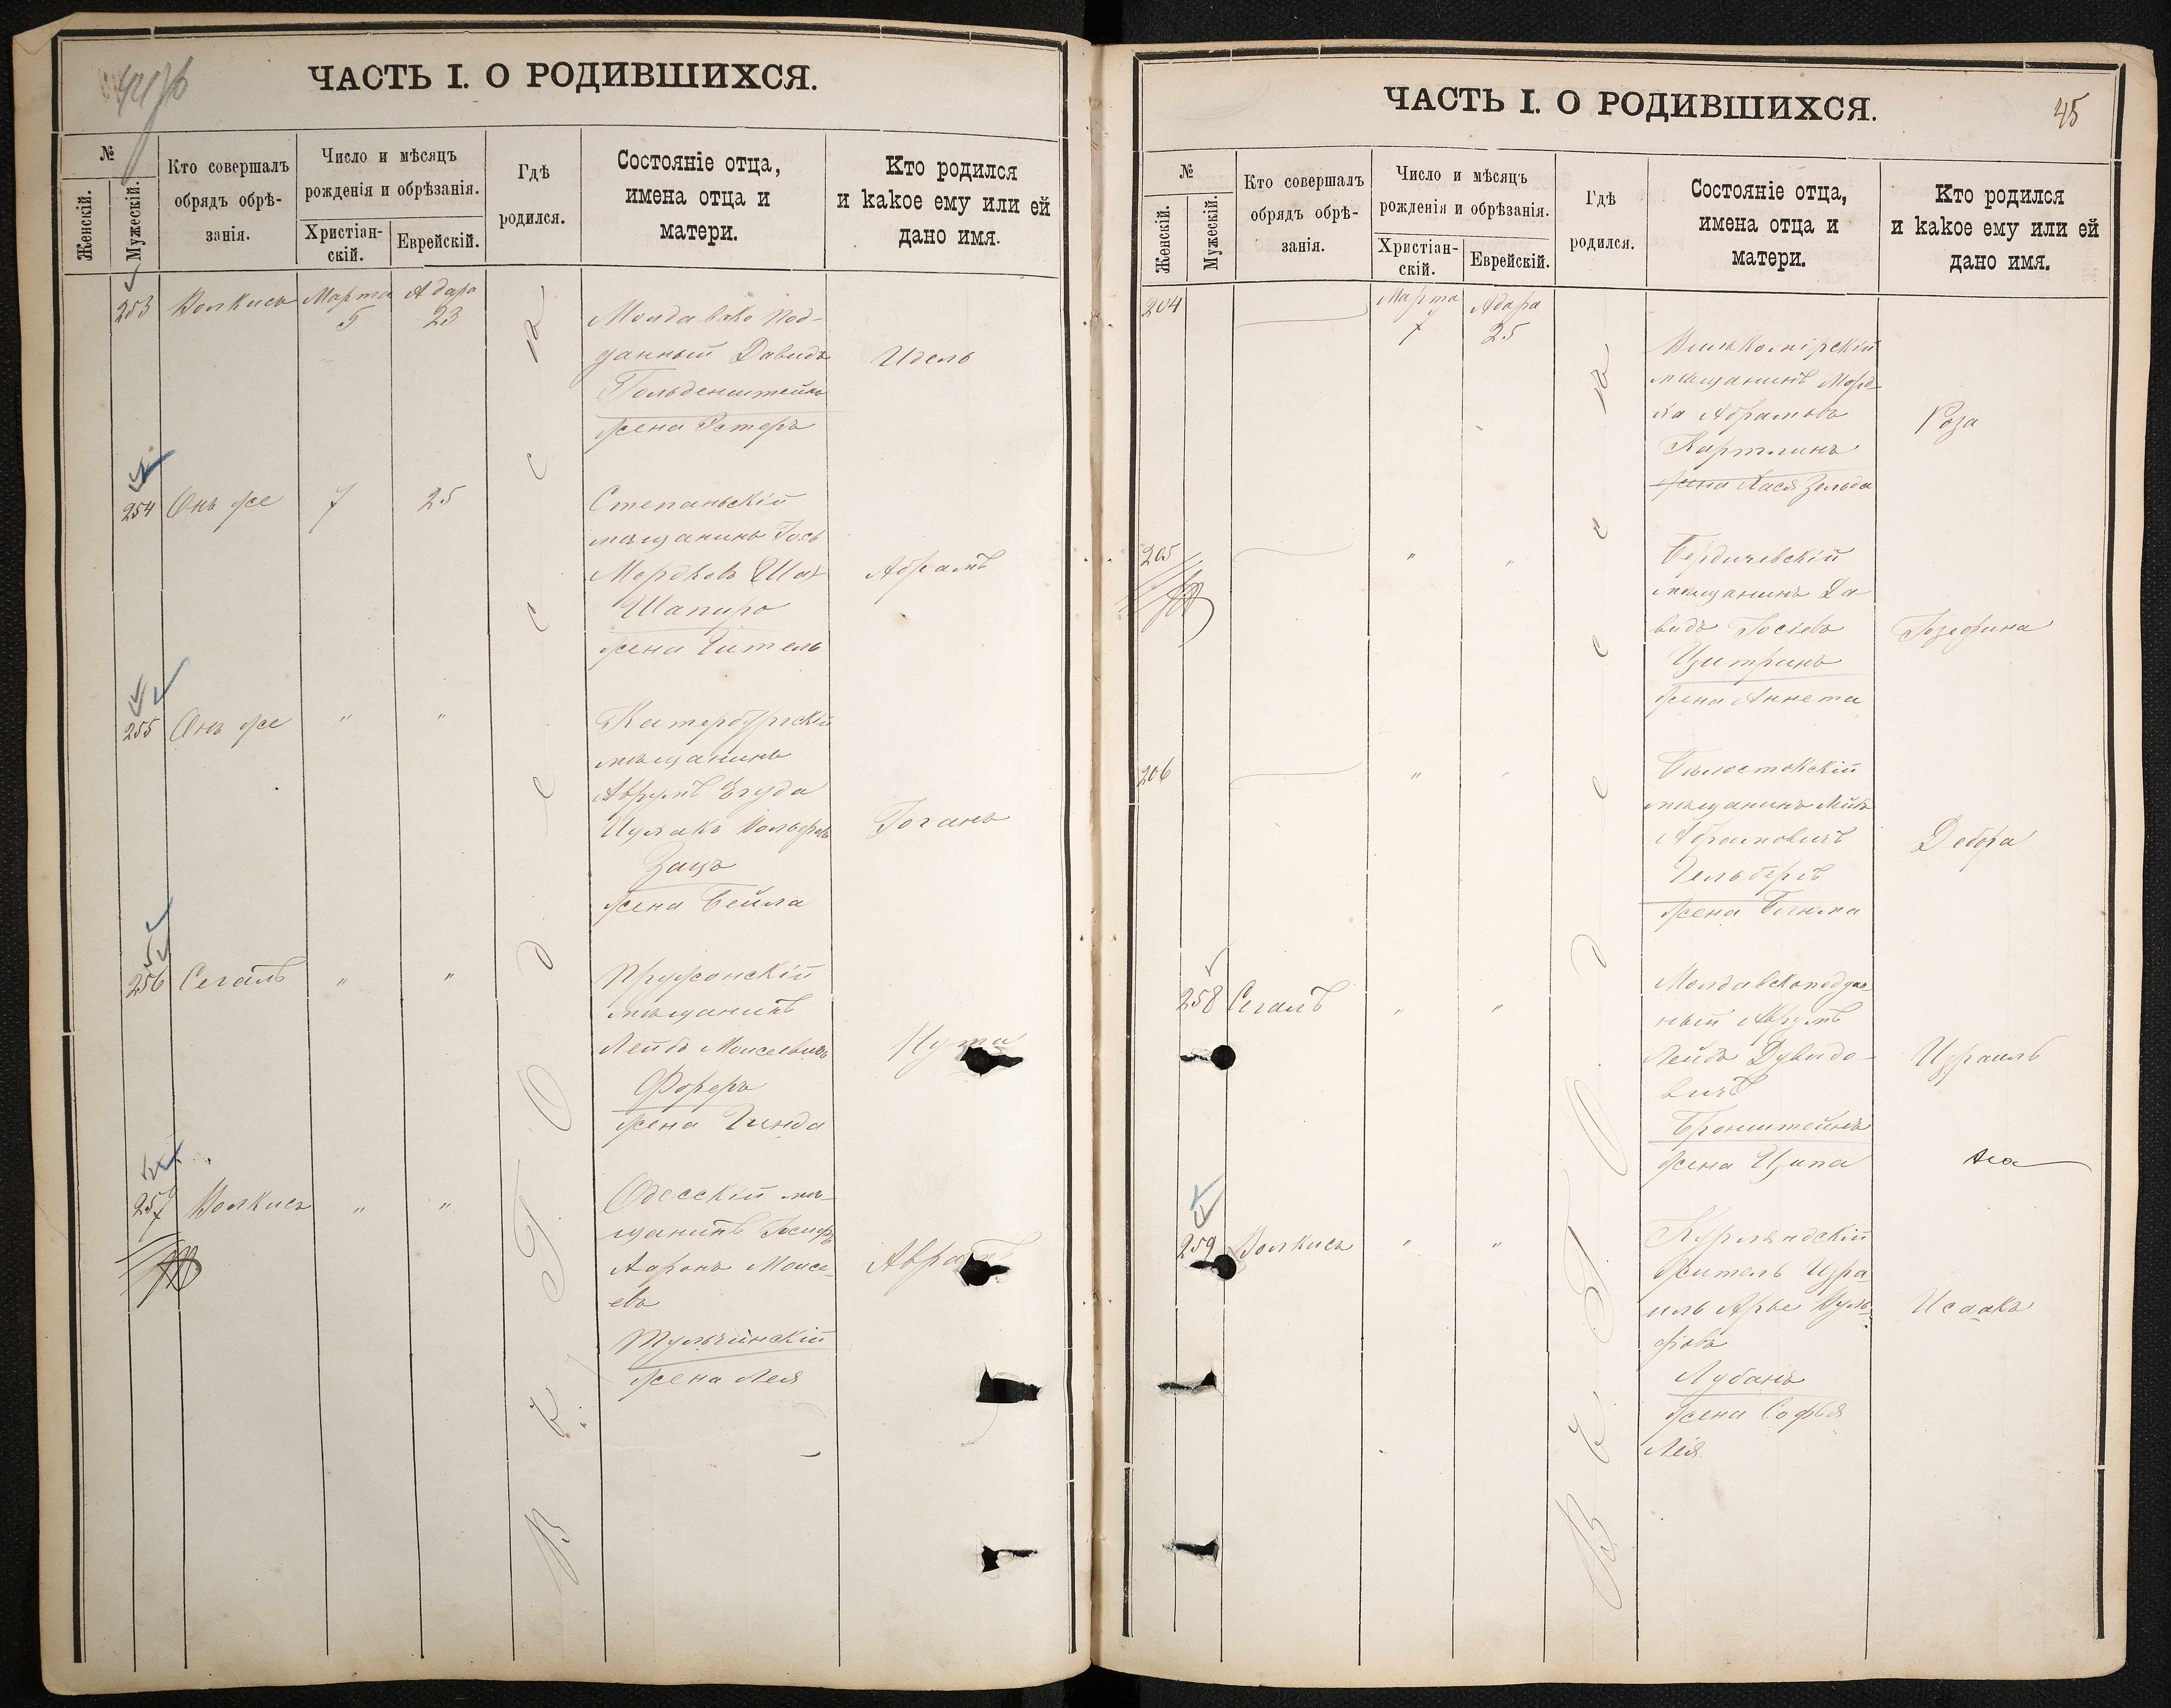 ЧАСТЬ I. О РОДИВШИХСЯ.
№
Женскій.
Мужескій.
Кто совершалъ
обрядъ обрѣ-
занія.
Число и мѣсяцъ
рожденія и обрѣзанія.
Христіан-
скій.
Еврейскій.
Гдѣ
родился.
Состояніе отца,
имена отца и
матери.
Кто родился
и какое ему или ей
дано имя.
253 Волкисъ Марта 5 Адара 23
Молдавско под-
данный Давидъ
Гольденштейнъ
жена Эстеръ
Идель
254 Онъ же 7 25
Степаньскій
мѣщанинъ Іось
Мордковъ
Шапиро
жена Гитель
Абрамъ
255 Онъ же " "
Катербургскій
мѣщанинъ
Аврумъ Егуда
Ицхакъ Вольфовъ
Зацъ
жена Бейла
Іоганъ
256 Сегалъ " "
Пружанскій
мѣщанинъ
Лейбъ Моисеевичъ
Фореръ
жена Гинда
Нута
257 Волкисъ " "
Одесскій мѣ-
щанинъ Іосифъ
Ааронъ Моисе-
евъ
Тульчинскій
жена Лея
Въ г. Одессѣ
ЧАСТЬ I. О РОДИВШИХСЯ.
45
№
Женскій.
Мужескій.
Кто совершалъ
обрядъ обрѣ-
занія.
Число и мѣсяцъ
рожденія и обрѣзанія.
Христіан-
скій.
Еврейскій.
Гдѣ
родился.
Состояніе отца,
имена отца и
матери.
Кто родился
и какое ему или ей
дано имя.
204 Марта 7 Адара 25
Вилькомірскій
мѣщанинъ Морд-
ха Абрамовъ
жена Хася Зельда
Роза
205 " "
Бердичевскій
мѣщанинъ Да
видъ Іосіевъ
Цитринъ
жена Аннета
Іозефина
206 " "
Бѣлостокскій
мѣщанинъ Лейба
Абрамовичъ
Гельбергъ
жена
Дебора
258 Сегалъ " "
Молдавскоподдан-
ный Аврумъ
Лейбъ Дувидо-
вичъ
Бронштейнъ
жена Ципа
Израиль
259 Волкисъ " "
Курляндскій
житель Изра
иль Арье Вуль-
фовъ
Лубанъ
жена Софья
Лея.
Исаакъ
Въ г. Одессѣ